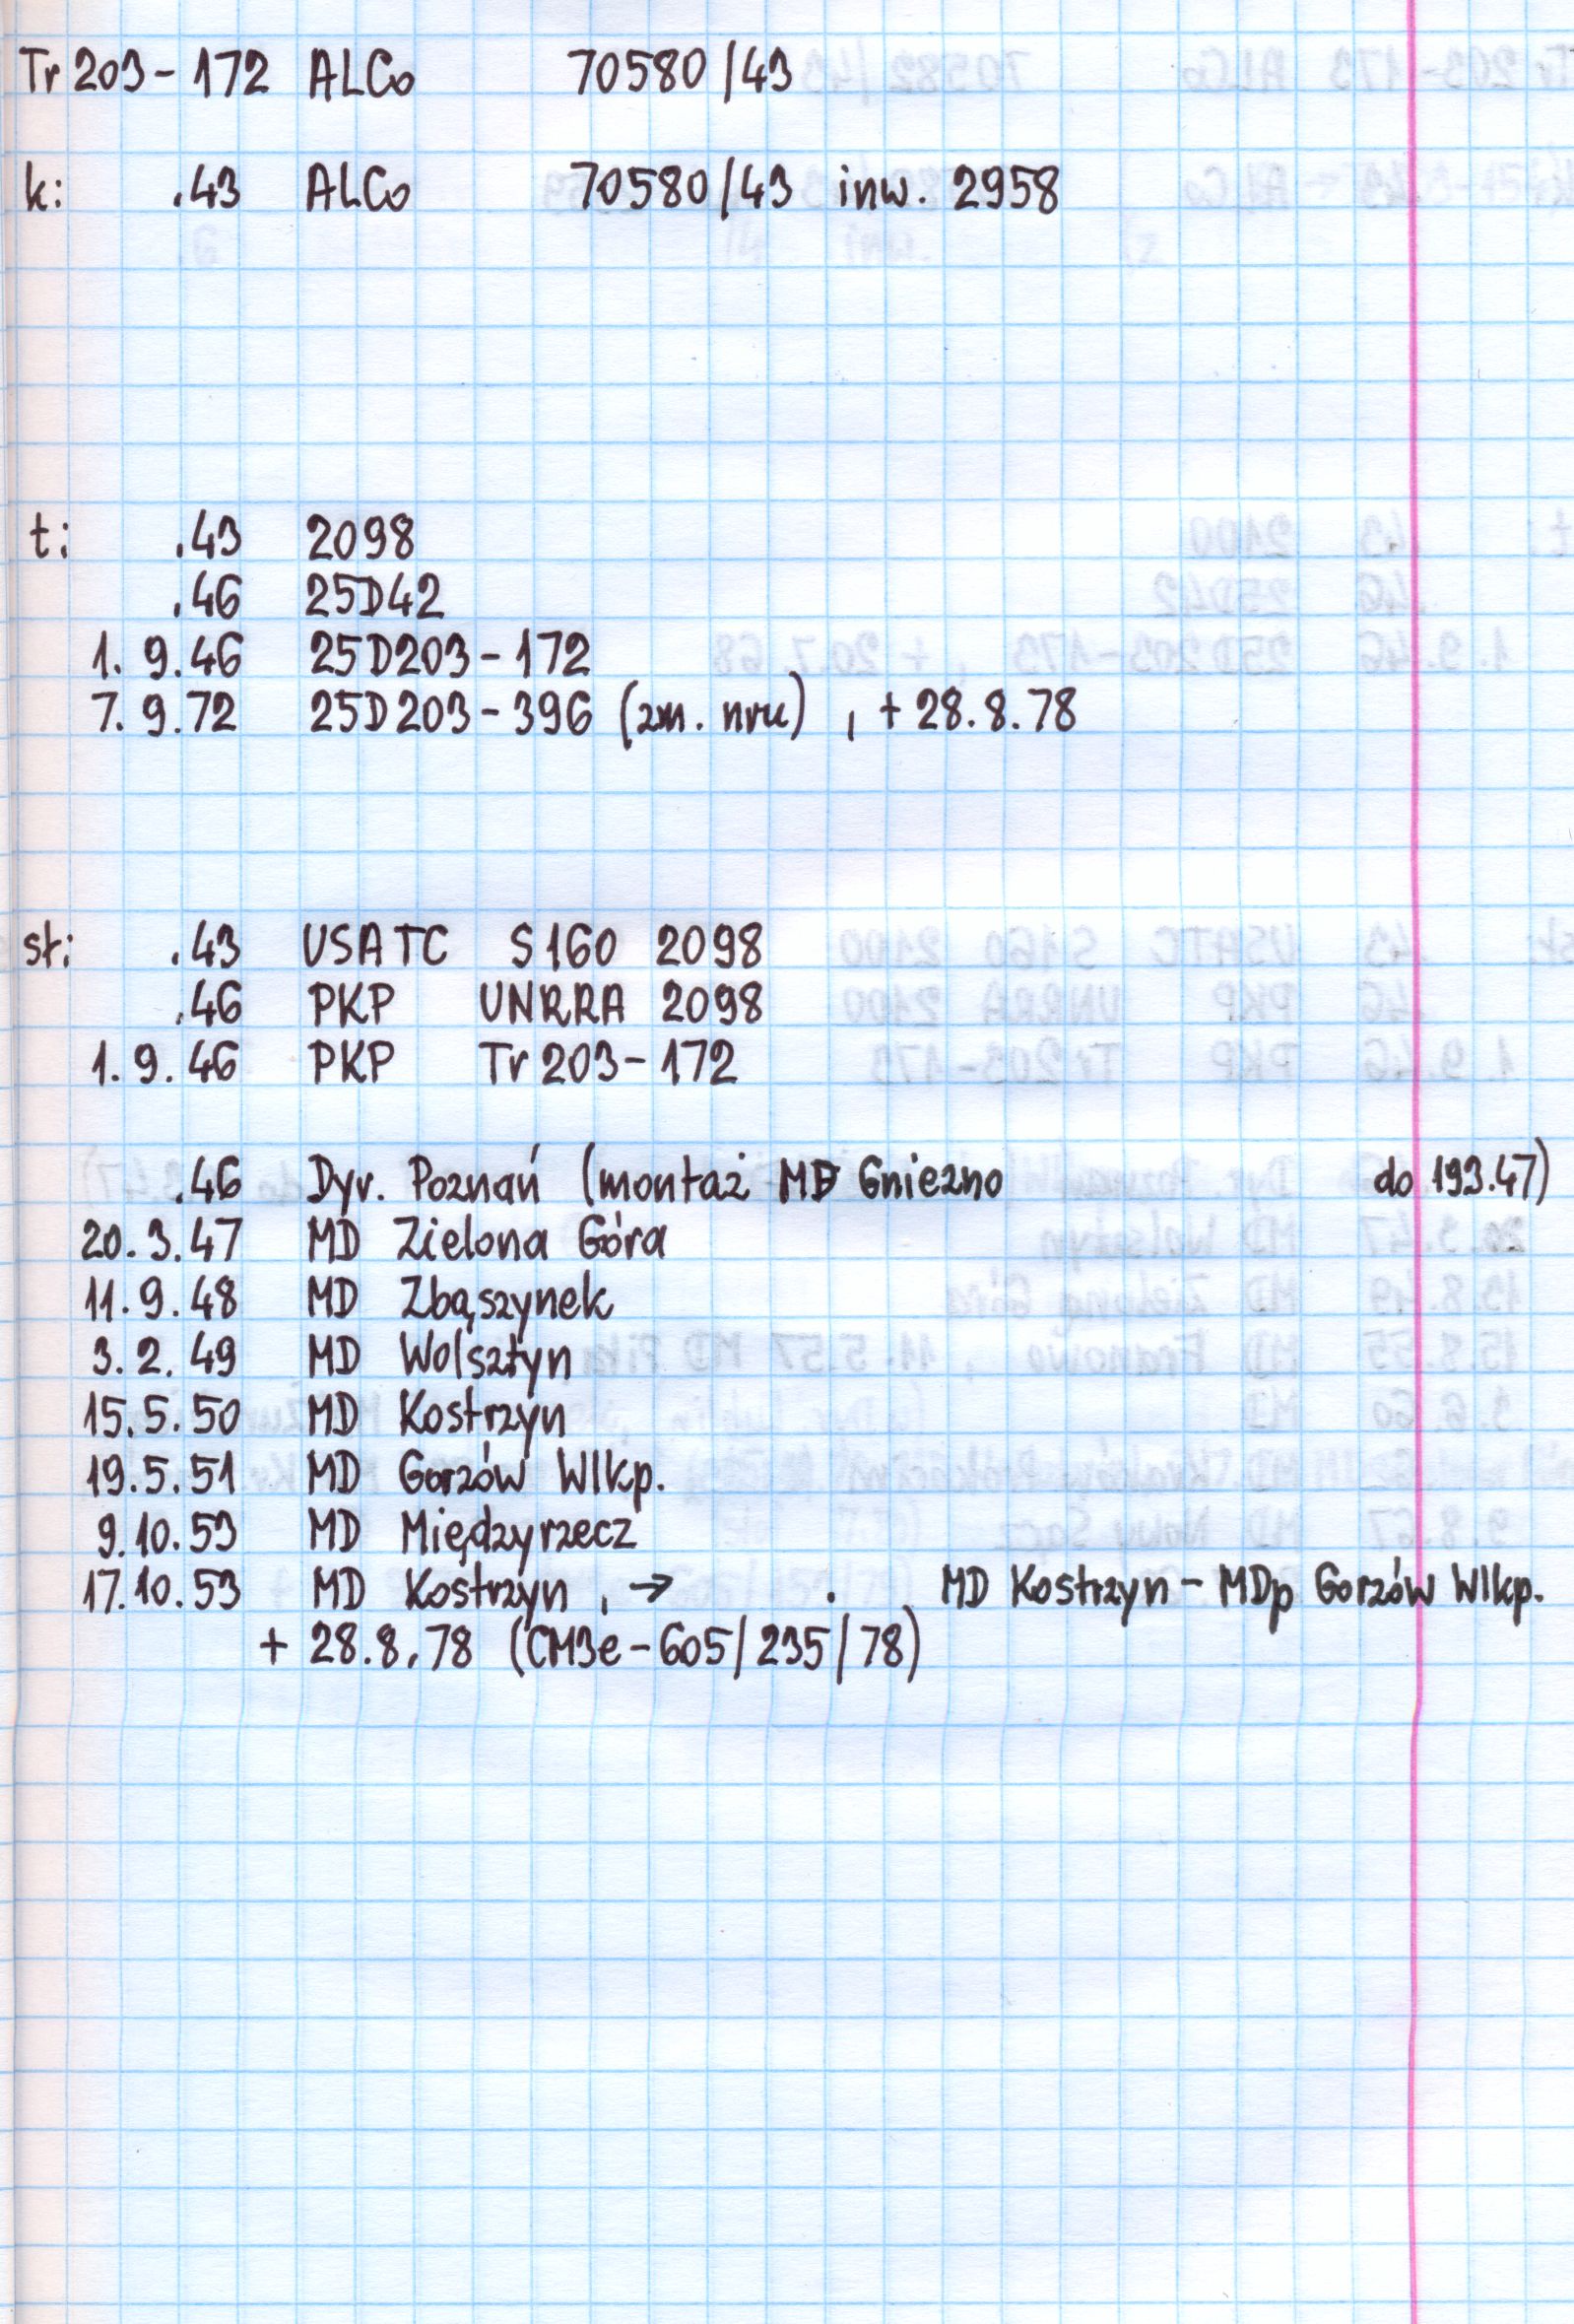 Tr 203-172 ALCo 70580/43
k: .43 ALCo 70580/43 inw. 2958
t: .43 2098
.46 25D42
1. 9.46 25D203-172
7. 9.72 25D203-396 (zm. nru) , + 28.8.78
st: .43 USATC S160 2098
.46 PKP UNRRA 2098
1. 9. 46 PKP Tr 203-172
.46 Dyr. Poznań (montaż MD Gniezno do 193.47)
20. 3.47 MD Zielona Góra
11. 9.48 MD Zbąszynek
3. 2. 49 MD Wolsztyn
15. 5. 50 MD Kostrzyn
19. 5. 51 MD Gorzów Wlkp.
9. 10. 53 MD Międzyrzecz
17. 10. 53 MD Kostrzyn , → . MD Kostrzyn - MDp Gorzów Wlkp.
+ 28.8.78 (CM3e-605/235/78)